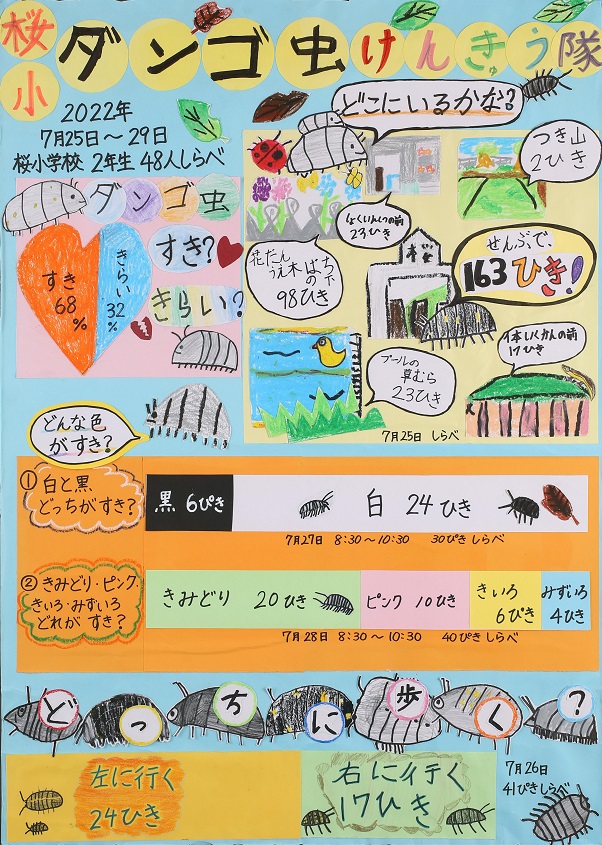 桜小
ダンゴ虫けんきゅう隊
2022年
7月25日～29日
桜小学校 2年生 48人しらべ
ダンゴ虫
すき?
きらい?
すき
68
%
きらい
32
%
どこにいるかな?
つき山
2ひき
しょくいんしつの前
23ひき
花だん
うえ木ばち
の下
98ひき
桜
ぜんぶで、
163ひき!
プールの
草むら
23ひき
1本しんかんの前
17ひき
7月25日 しらべ
どんな色
がすき?
①白と黒
どっちがすき?
黒 6ぴき
白 24ひき
7月27日 8:30～10:30 30ぴきしらべ
②きみどり・ピンク
きいろ・みずいろ
どれが すき?
きみどり 20ひき
ピンク 10ひき
きいろ
6ぴき
みずいろ
4ひき
7月28日 8:30～10:30 40ぴきしらべ
どっちに歩く?
左に行く
24ひき
右に行く
17ひき
7月26日
41ぴきしらべ